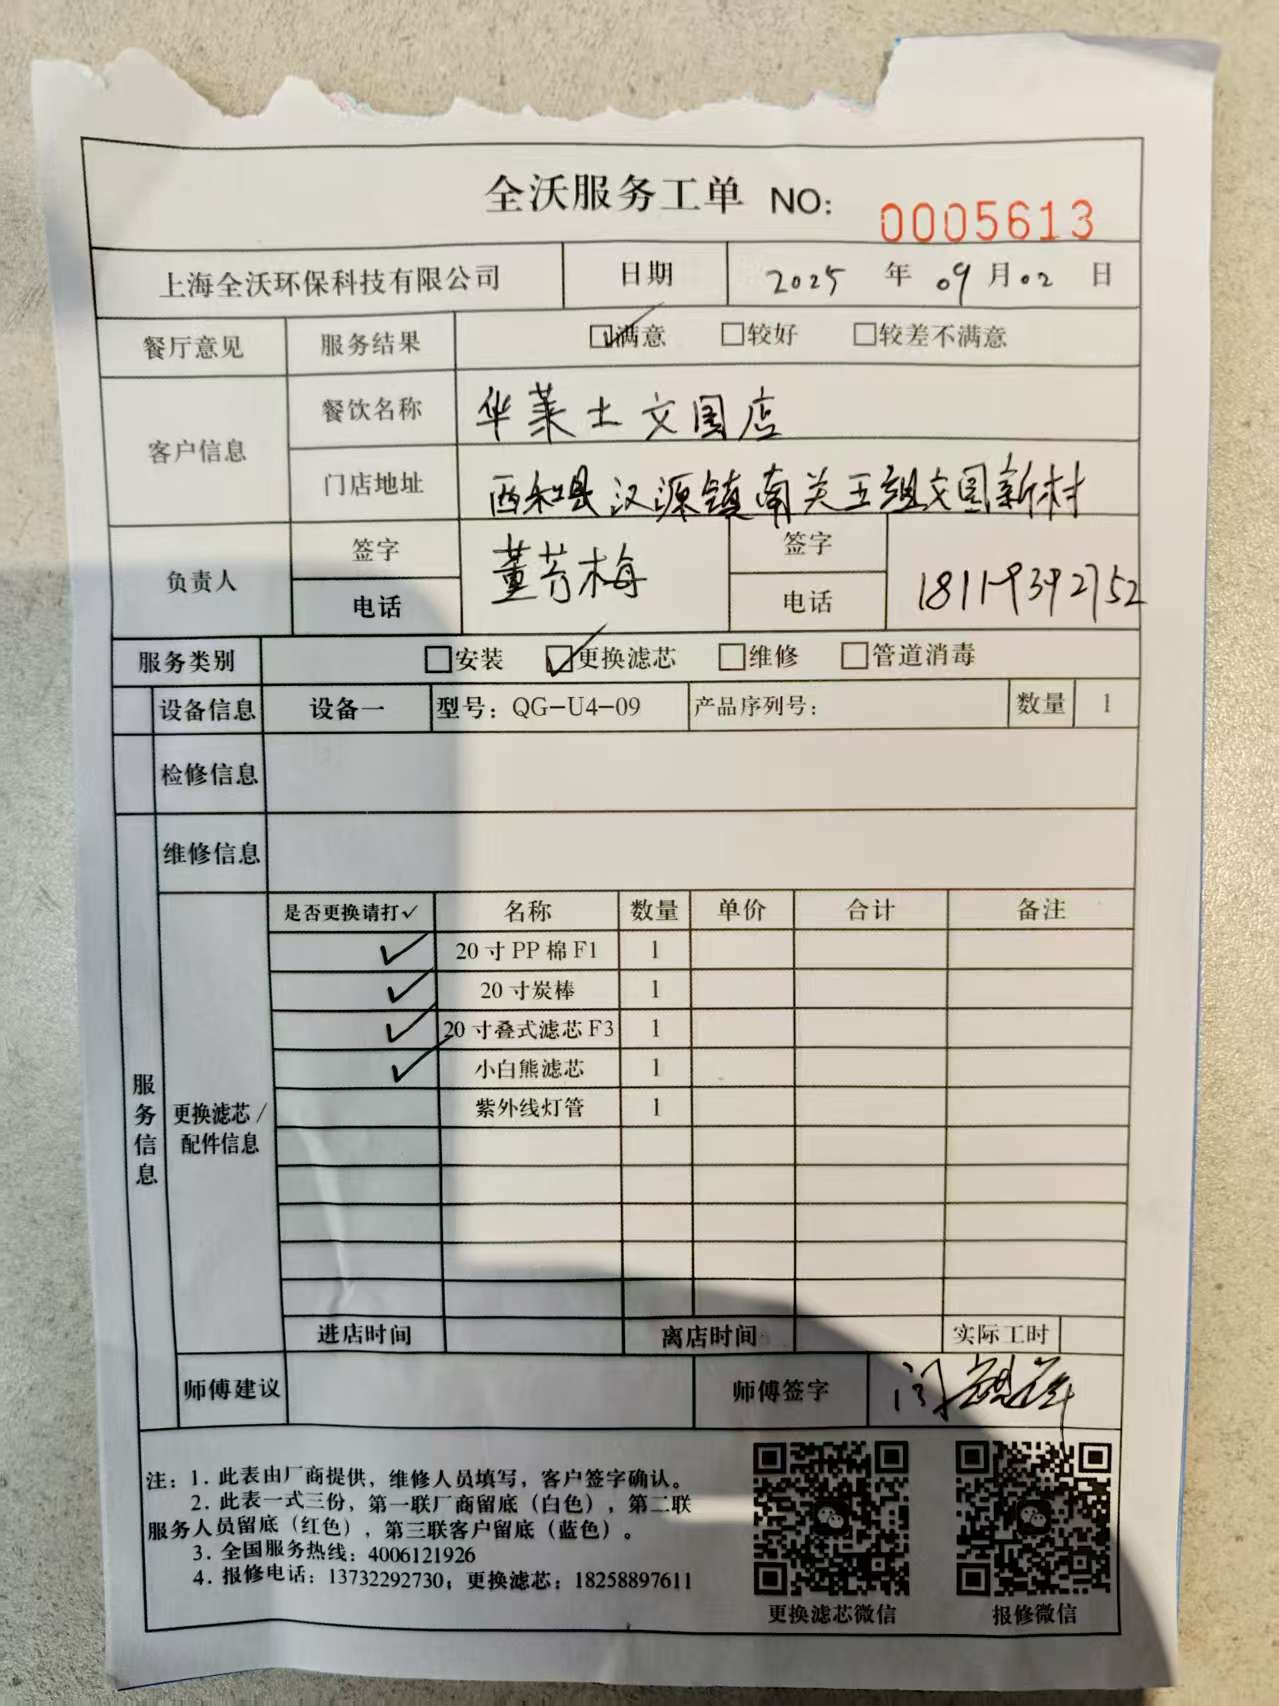 全沃服务工单 NO: 0005613
上海全沃环保科技有限公司 日期 2025 年 09 月 02 日
餐厅意见 服务结果 ☑满意 □较好 □较差不满意
客户信息 餐饮名称 华莱士文国店
门店地址 西和县汉源镇南关五组文国新村
负责人 签字 董芳梅 签字
电话 电话 18119392752
服务类别 □安装 ☑更换滤芯 □维修 □管道消毒
设备信息 设备一 型号：QG-U4-09 产品序列号： 数量 1
检修信息
维修信息
服务信息
更换滤芯/配件信息
是否更换请打✓ 名称 数量 单价 合计 备注
✓ 20寸PP棉F1 1
✓ 20寸炭棒 1
✓ 20寸叠式滤芯F3 1
✓ 小白熊滤芯 1
紫外线灯管 1
进店时间 离店时间 实际工时
师傅建议 师傅签字
注：1. 此表由厂商提供，维修人员填写，客户签字确认。
2. 此表一式三份，第一联厂商留底（白色），第二联
服务人员留底（红色），第三联客户留底（蓝色）。
3. 全国服务热线：4006121926
4. 报修电话：13732292730；更换滤芯：18258897611
更换滤芯微信 报修微信